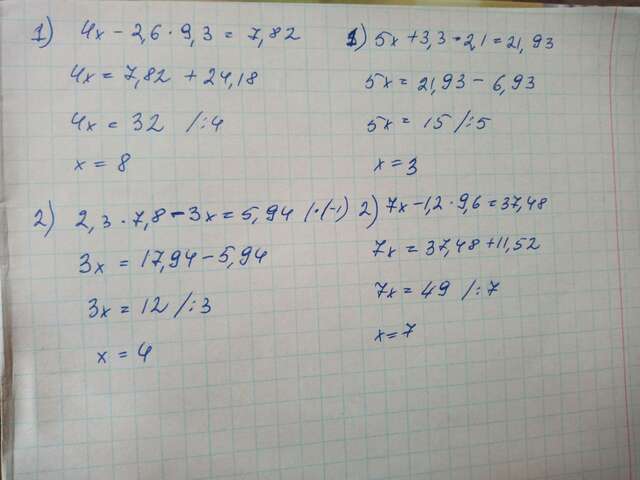 1) 4x - 2,6 · 9,3 = 7,82
4x = 7,82 + 24,18
4x = 32 /:4
x = 8
2) 2,3 · 7,8 - 3x = 5,94 /·(-1)
3x = 17,94 - 5,94
3x = 12 /:3
x = 4
1) 5x + 3,3 · 2,1 = 21,93
5x = 21,93 - 6,93
5x = 15 /:5
x = 3
2) 7x - 1,2 · 9,6 = 37,48
7x = 37,48 + 11,52
7x = 49 /:7
x = 7